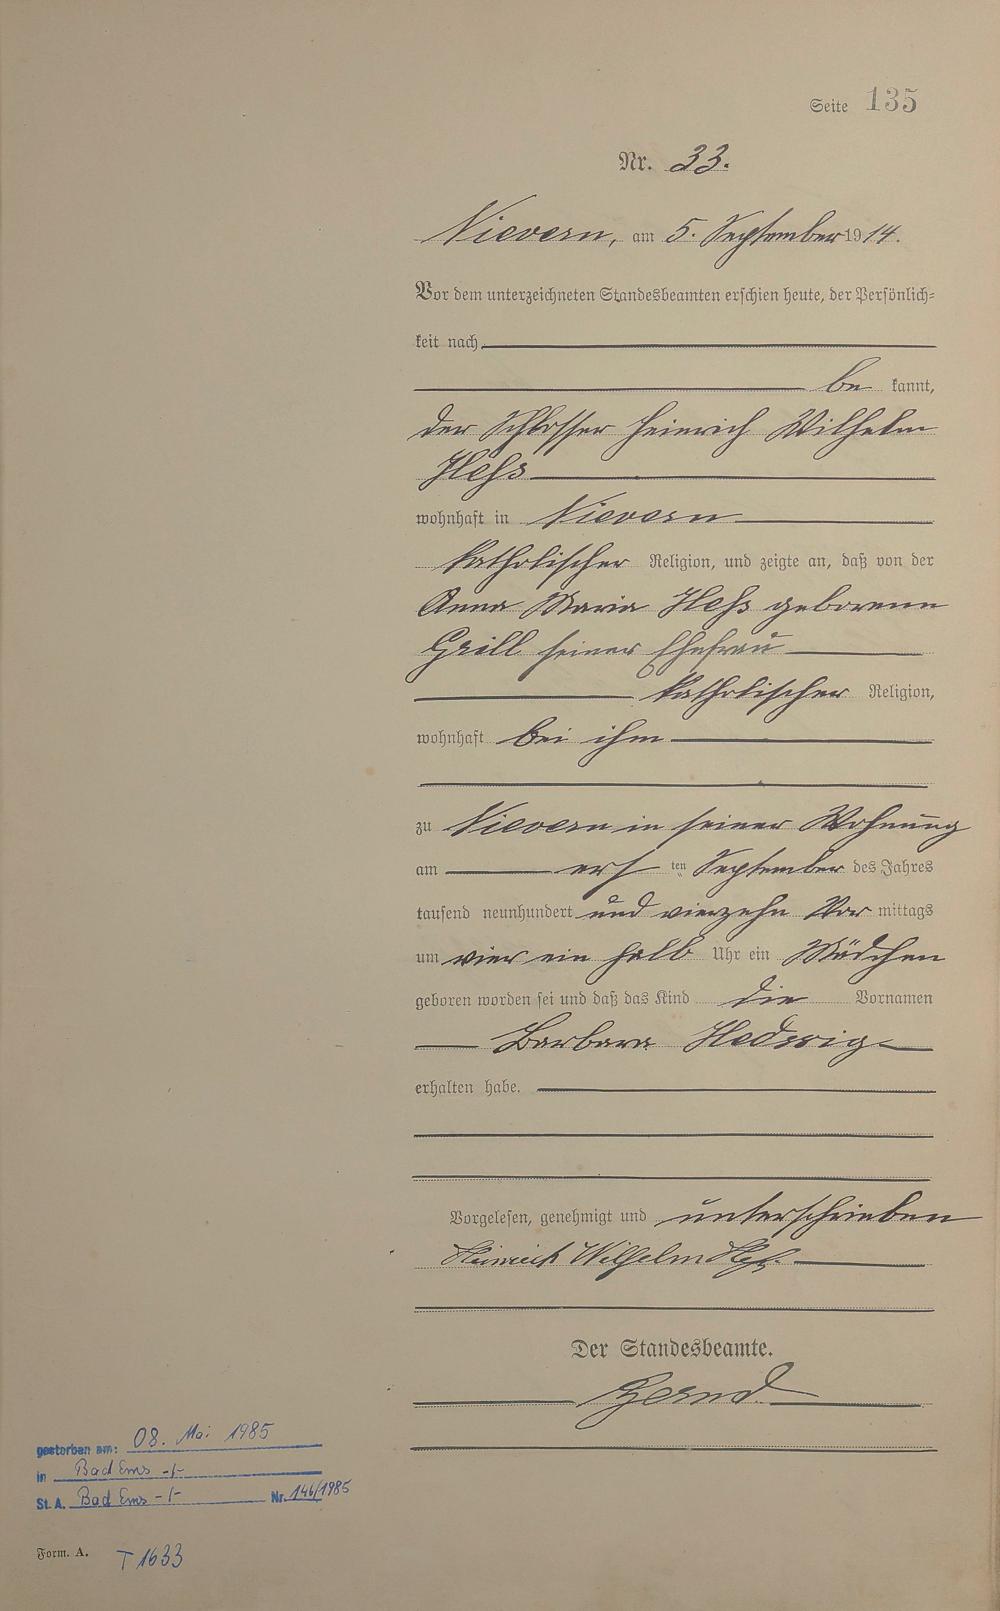 Seite 135
Nr. 33.
Nievern, am 5. September 1914.
Vor dem unterzeichneten Standesbeamten erschien heute, der Persönlich-
keit nach
be kannt,
der Schlosser Heinrich Wilhelm
Heß
wohnhaft in Nievern
katholischer Religion, und zeigte an, daß von der
Anna Maria Heß geborenen
Grill seiner Ehefrau
katholischer Religion,
wohnhaft bei ihm
zu Nievern in seiner Wohnung
am ersten September des Jahres
tausend neunhundert und vierzehn Vor mittags
um vier ein halb Uhr ein Mädchen
geboren worden sei und daß das Kind die Vornamen
Barbara Hedwig
erhalten habe.
Vorgelesen, genehmigt und unterschrieben
Heinrich Wilhelm Heß
Der Standesbeamte.
gestorben am: 08. Mai 1985
in Bad Ems -/-
St. A. Bad Ems -/- Nr. 146/1985
Form. A. T 1633